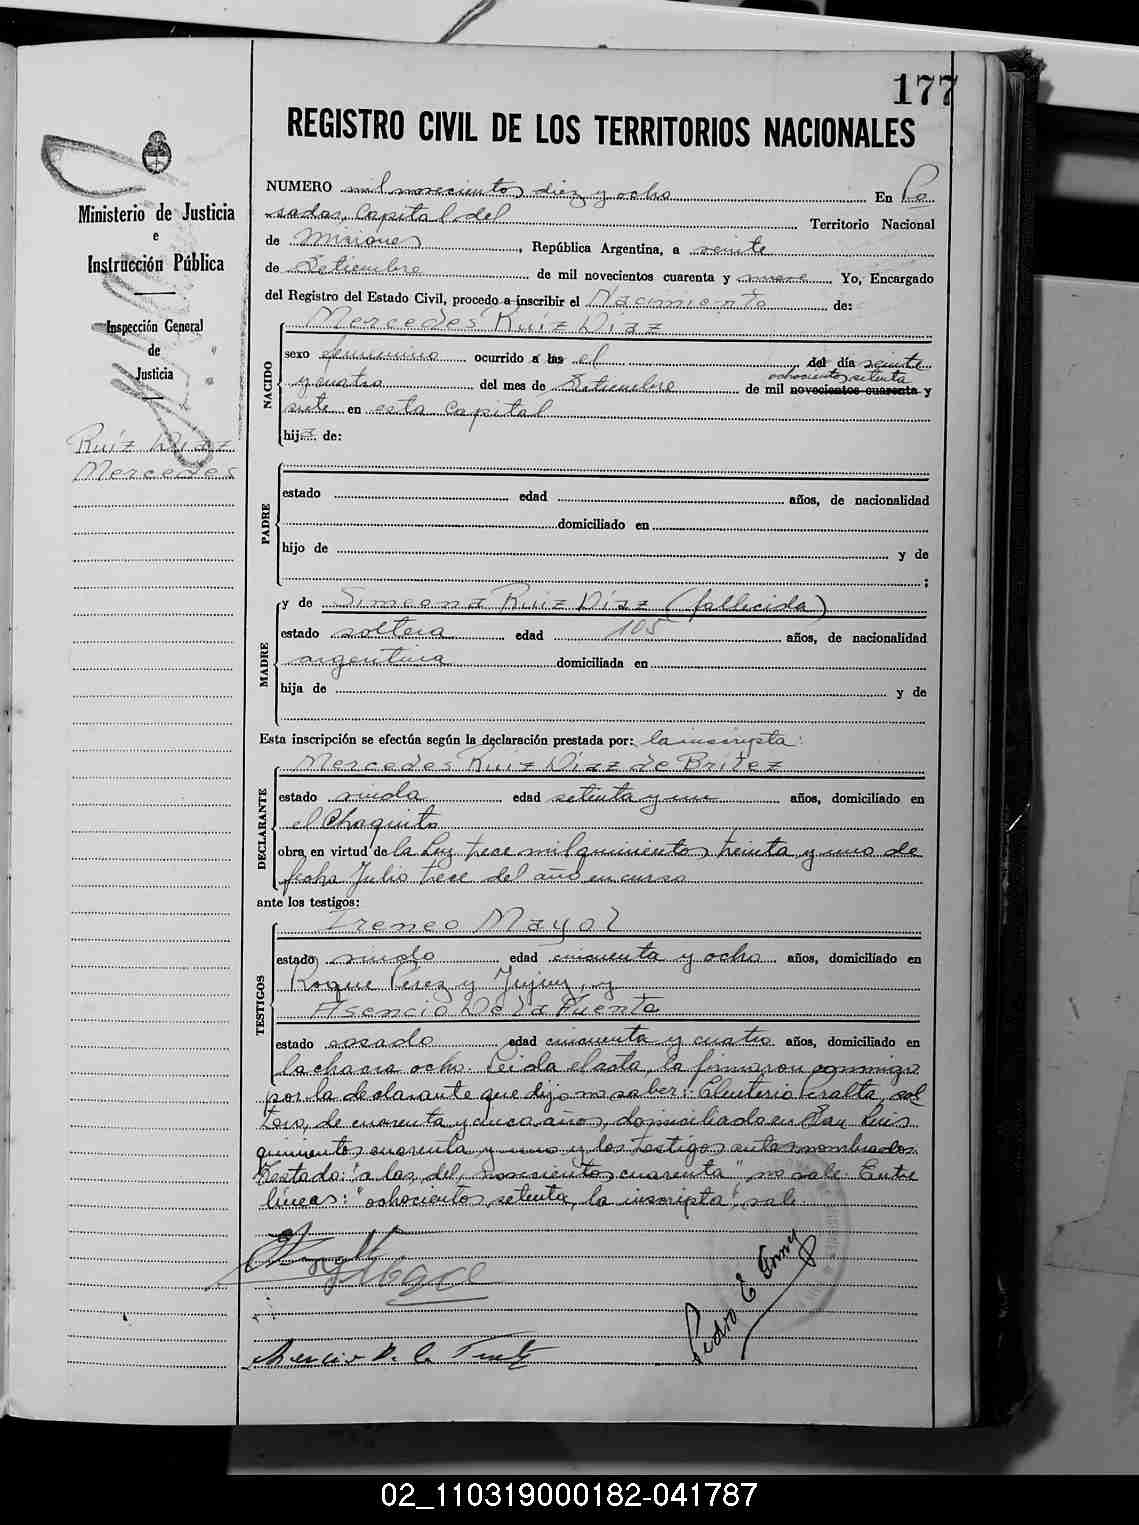 177
REGISTRO CIVIL DE LOS TERRITORIOS NACIONALES
Ministerio de Justicia
e
Instrucción Pública
Inspección General
de
Justicia
Ruíz Díaz
Mercedes
NUMERO mil novecientos diez y ocho En Po
sadas, Capital del Territorio Nacional
de Misiones, República Argentina, a veinte
de Setiembre de mil novecientos cuarenta y nueve Yo, Encargado
del Registro del Estado Civil, procedo a inscribir el Nacimiento de:
Mercedes Ruiz Díaz
NACIDO
sexo femenino ocurrido a las el del día veinte
ochocientos setenta
y cuatro del mes de Setiembre de mil novecientos cuarenta y
siete en esta Capital
hija de:
PADRE
estado edad años, de nacionalidad
domiciliado en
hijo de y de
;
MADRE
y de Simeona Ruiz Díaz (fallecida)
estado soltera edad 105 años, de nacionalidad
argentina domiciliada en
hija de y de
Esta inscripción se efectúa según la declaración prestada por: la inscripta:
DECLARANTE
Mercedes Ruiz Díaz de Britez
estado viuda edad setenta y un años, domiciliado en
el Chaquito
obra en virtud de la Ley trece mil quinientos treinta y uno de
fecha Julio trece del año en curso
ante los testigos:
TESTIGOS
Ireneo Mayol
estado viudo edad cincuenta y ocho años, domiciliado en
Roque Pérez y Jujuy, y
Asencio De la Fuente
estado casado edad cincuenta y cuatro años, domiciliado en
la chacra ocho. Leida el acta, la firmaron conmigo
por la declarante que dijo no saber: Eleuterio Peralta, sol
tero, de cuarenta y cinco años, domiciliado en San Luis
quinientos cuarenta y uno y los testigos antes nombrados.
Testado: "a las, del, novecientos cuarenta" no vale. Entre
líneas: "ochocientos setenta, la inscripta", vale.
Asencio D. la Fuente
02_110319000182-041787